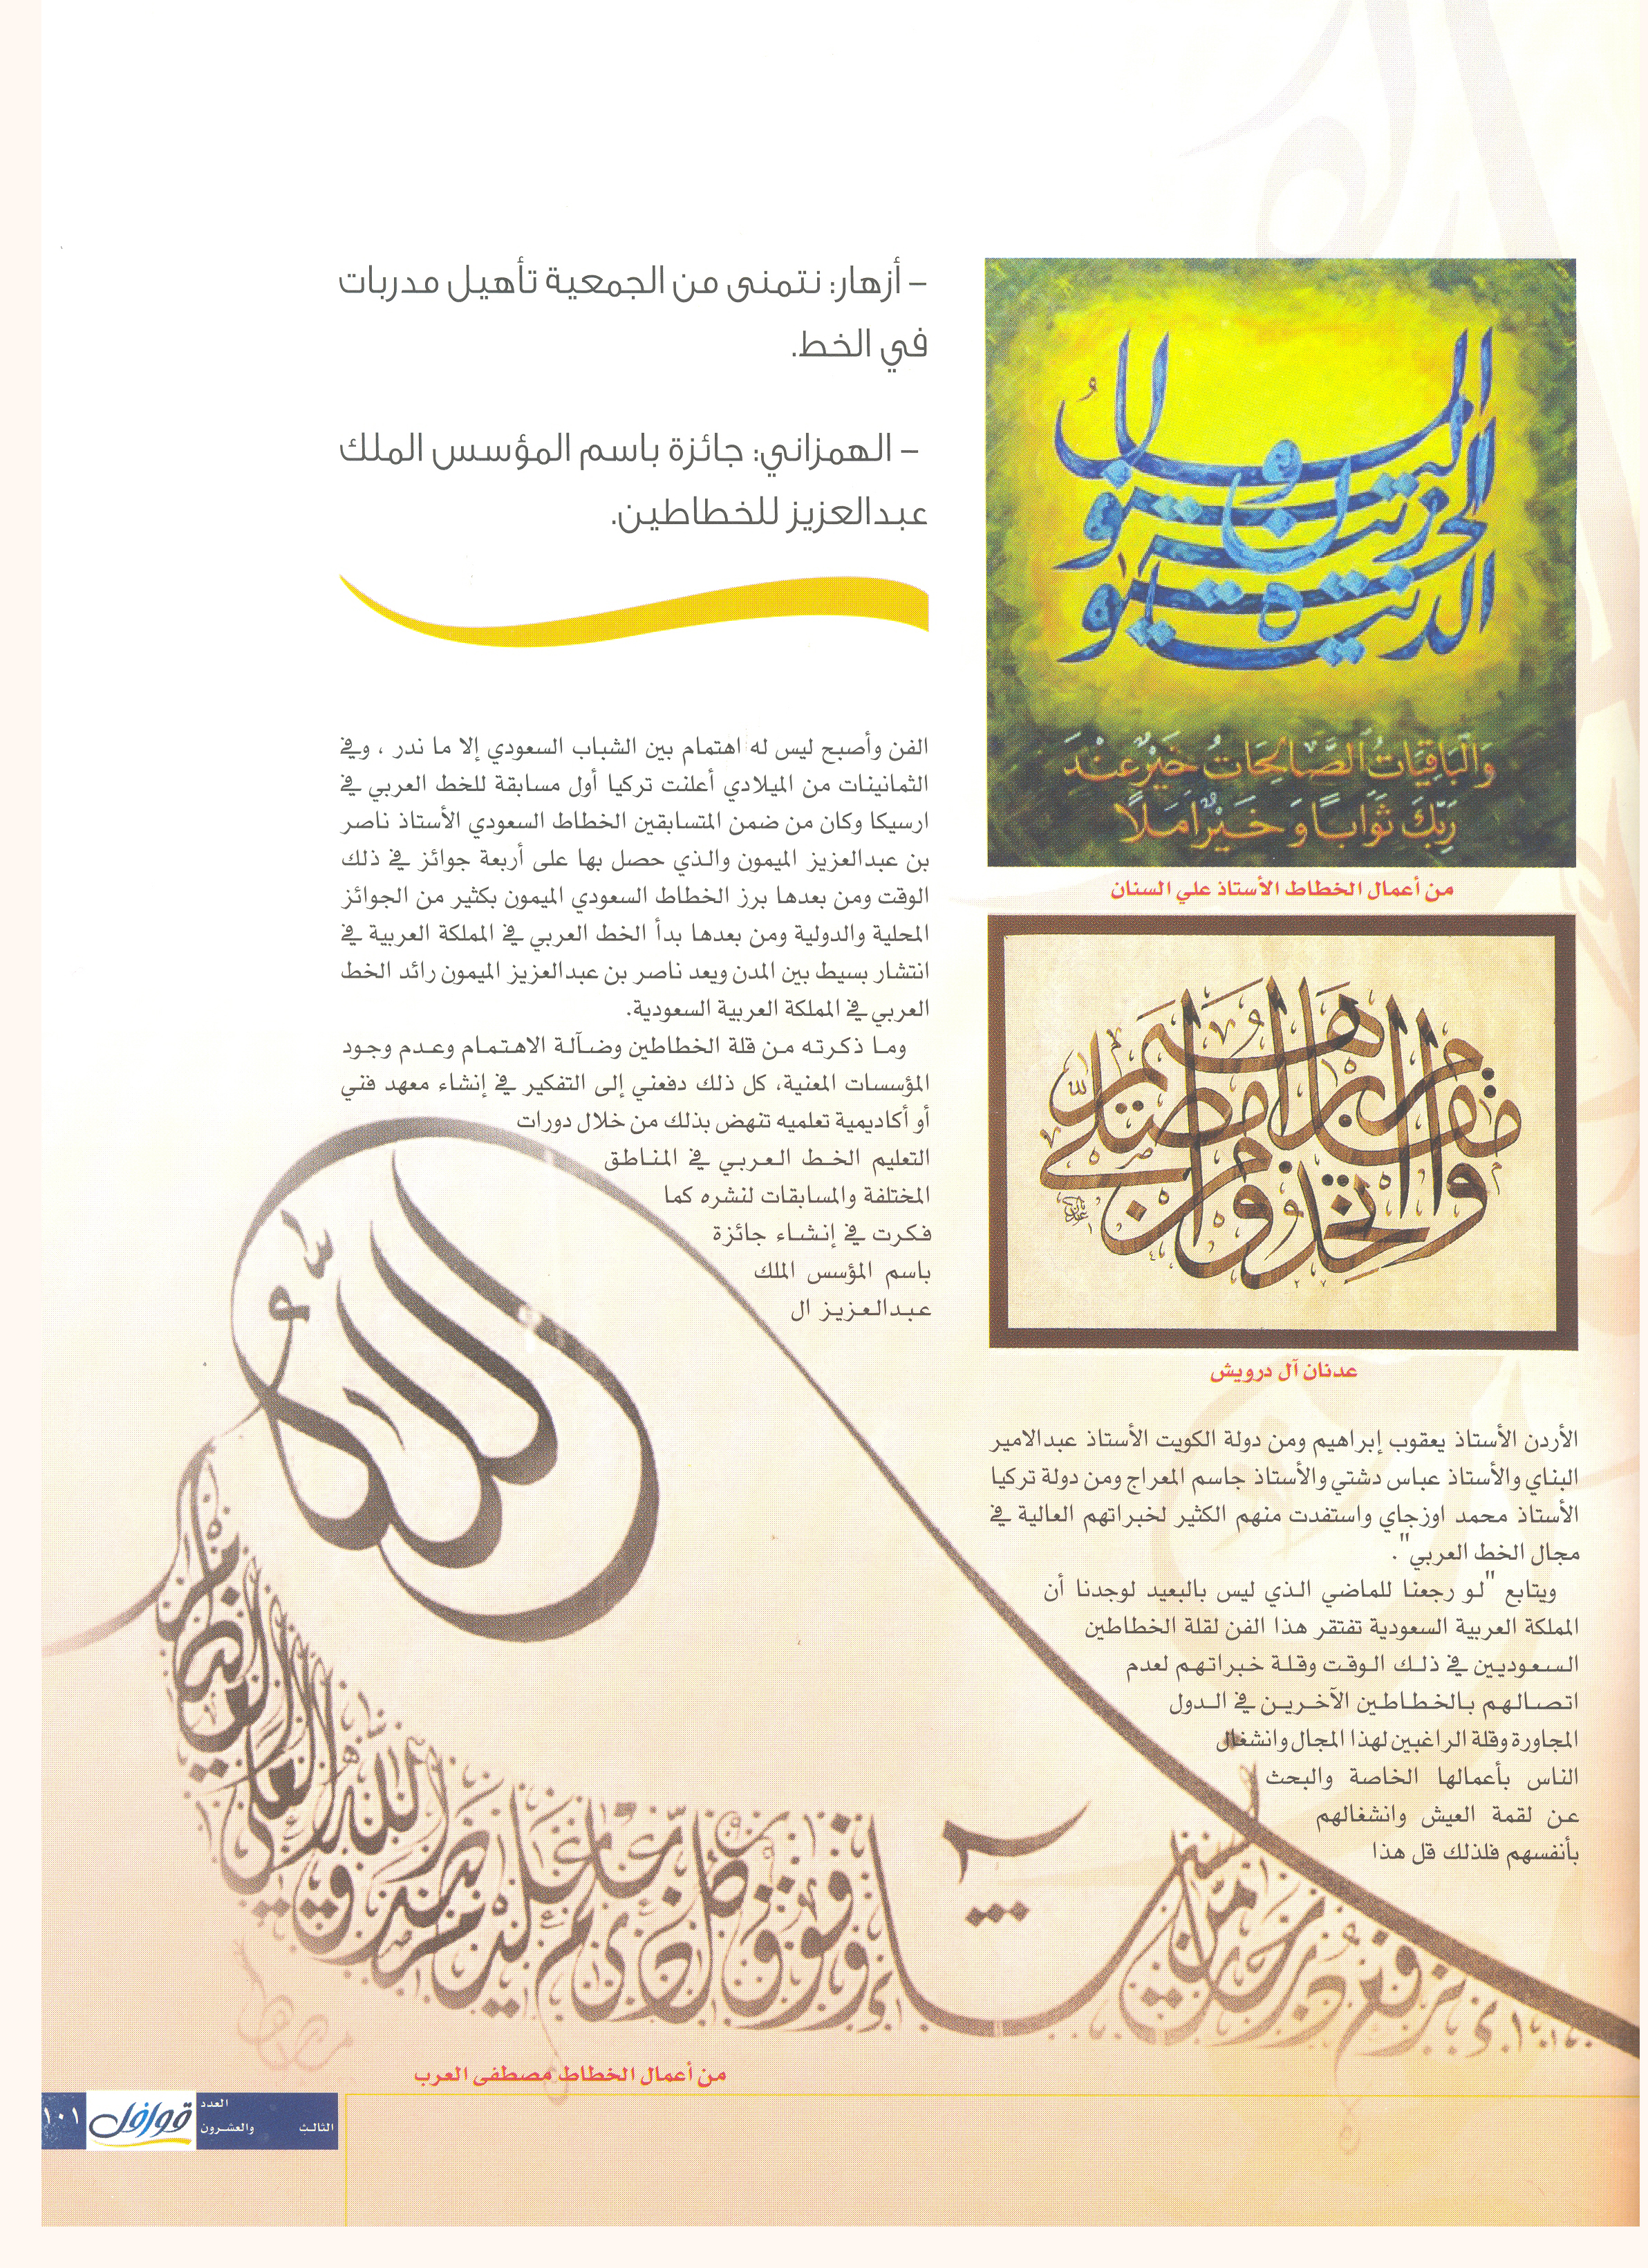 – أزهار: نتمنى من الجمعية تأهيل مدربات
في الخط.
– الهمزاني: جائزة باسم المؤسس الملك
عبدالعزيز للخطاطين.
المال والبنون
زينة الحيوة
الدنيا
وَالْبَاقِيَاتُ الصَّالِحَاتُ خَيْرٌ عِنْدَ
رَبِّكَ ثَوَابًا وَخَيْرٌ أَمَلًا
من أعمال الخطاط الأستاذ علي السنان
واتخذوا من مقام إبراهيم مصلى
عدنان آل درويش
الأردن الأستاذ يعقوب إبراهيم ومن دولة الكويت الأستاذ عبدالامير
البناي والأستاذ عباس دشتي والأستاذ جاسم المعراج ومن دولة تركيا
الأستاذ محمد اوزجاي واستفدت منهم الكثير لخبراتهم العالية في
مجال الخط العربي".
ويتابع "لو رجعنا للماضي الذي ليس بالبعيد لوجدنا أن
المملكة العربية السعودية تفتقر هذا الفن لقلة الخطاطين
السعوديين في ذلك الوقت وقلة خبراتهم لعدم
اتصالهم بالخطاطين الآخرين في الدول
المجاورة وقلة الراغبين لهذا المجال وانشغال
الناس بأعمالها الخاصة والبحث
عن لقمة العيش وانشغالهم
بأنفسهم فلذلك قل هذا
الفن وأصبح ليس له اهتمام بين الشباب السعودي إلا ما ندر ، وفي
الثمانينات من الميلادي أعلنت تركيا أول مسابقة للخط العربي في
ارسيكا وكان من ضمن المتسابقين الخطاط السعودي الأستاذ ناصر
بن عبدالعزيز الميمون والذي حصل بها على أربعة جوائز في ذلك
الوقت ومن بعدها برز الخطاط السعودي الميمون بكثير من الجوائز
المحلية والدولية ومن بعدها بدأ الخط العربي في المملكة العربية في
انتشار بسيط بين المدن ويعد ناصر بن عبدالعزيز الميمون رائد الخط
العربي في المملكة العربية السعودية.
وما ذكرته من قلة الخطاطين وضآلة الاهتمام وعدم وجود
المؤسسات المعنية، كل ذلك دفعني إلى التفكير في إنشاء معهد فني
أو أكاديمية تعلميه تنهض بذلك من خلال دورات
التعليم الخط العربي في المناطق
المختلفة والمسابقات لنشره كما
فكرت في إنشاء جائزة
باسم المؤسس الملك
عبدالعزيز ال
الله
نرفع درجات من نشاء وفوق كل ذي علم عليم
من أعمال الخطاط مصطفى العرب
العدد
الثالث والعشرون
قوافل
١٠١